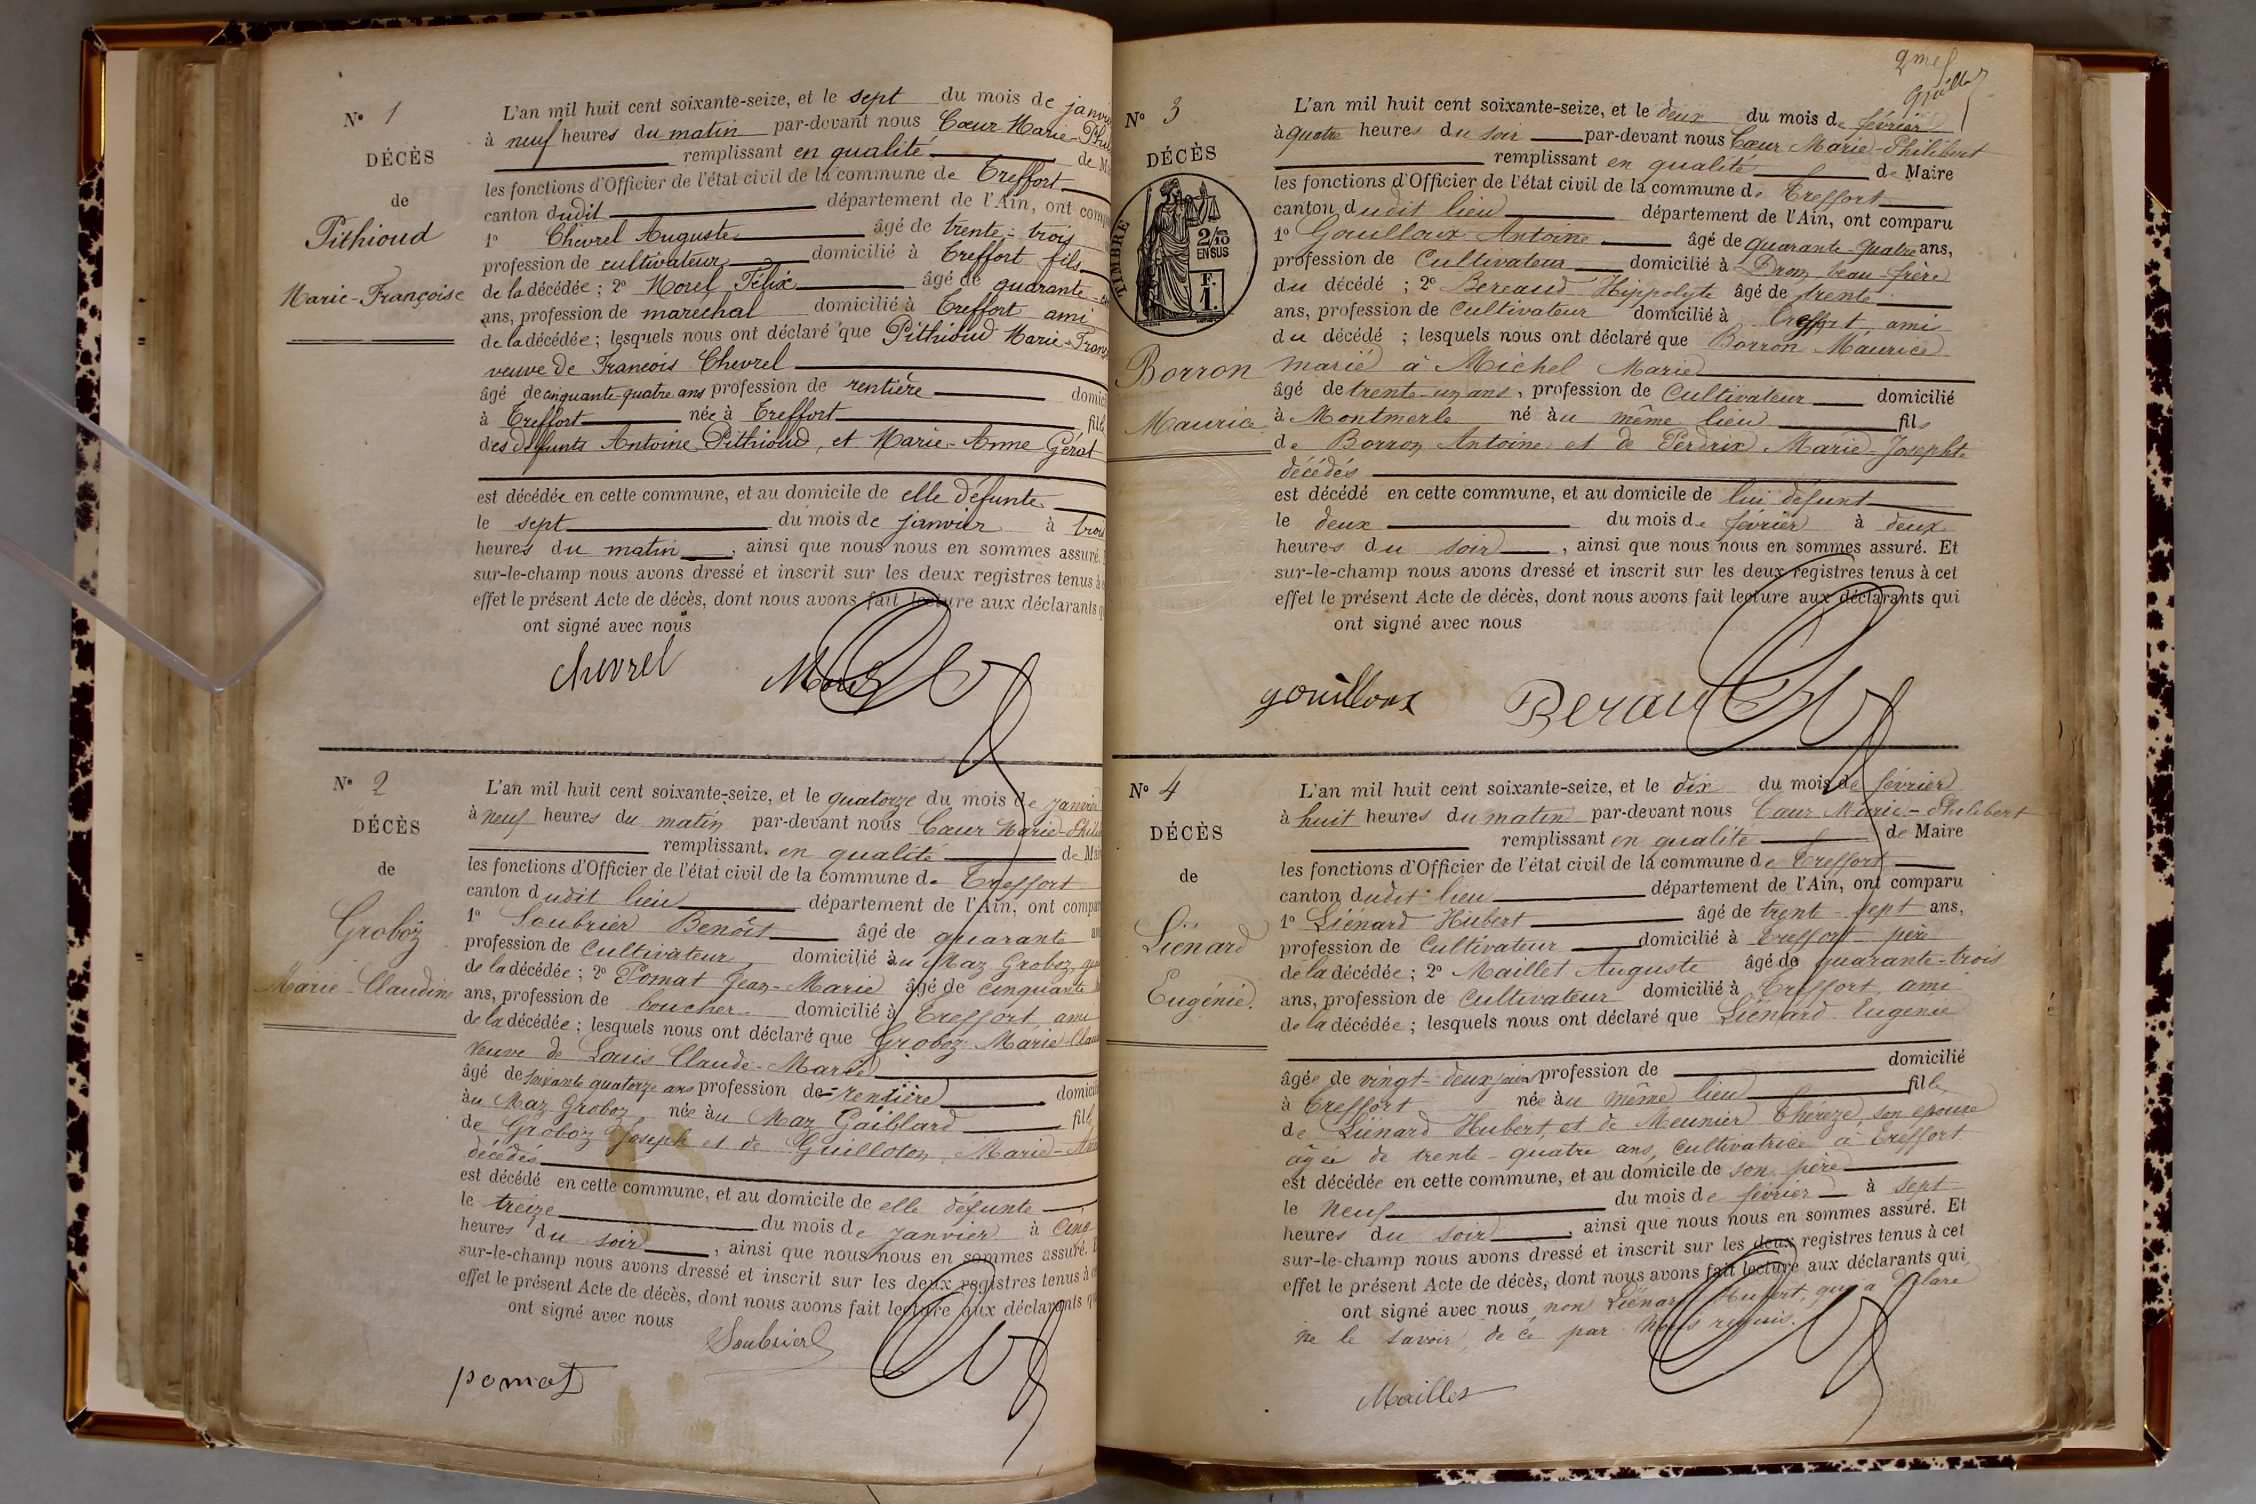 N° 1
DÉCÈS
de
Pithioud
Marie-Françoise
L'an mil huit cent soixante-seize, et le sept du mois de janvier
à neuf heures du matin par-devant nous Cœur Marie-Phil
remplissant en qualité de M
les fonctions d'Officier de l'état civil de la commune de Treffort
canton dudit département de l'Ain, ont comp
1° Chevrel Auguste âgé de trente-trois
profession de cultivateur domicilié à Treffort fils
de la décédée ; 2° Morel Félix âgé de quarante
ans, profession de maréchal domicilié à Treffort ami
de la décédée ; lesquels nous ont déclaré que Pithioud Marie-Franç
veuve de François Chevrel
âgé de cinquante-quatre ans profession de rentière domici
à Treffort née à Treffort fille
des défunts Antoine Pithioud, et Marie-Anne Gérat
est décédée en cette commune, et au domicile de elle défunte
le sept du mois de janvier à trois
heures du matin, ainsi que nous nous en sommes assuré.
sur-le-champ nous avons dressé et inscrit sur les deux registres tenus à
effet le présent Acte de décès, dont nous avons fait lecture aux déclarants q
ont signé avec nous
Chevrel Morel
N° 2
DÉCÈS
de
Groboz
Marie-Claudine
L'an mil huit cent soixante-seize, et le quatorze du mois de janvier
à neuf heures du matin par-devant nous Cœur Marie-Phili
remplissant en qualité de Mai
les fonctions d'Officier de l'état civil de la commune de Treffort
canton dudit lieu département de l'Ain, ont compar
1° Soubrier Benoît âgé de quarante an
profession de Cultivateur domicilié au Maz Groboz,
de la décédée ; 2° Pomat Jean-Marie âgé de cinquante
ans, profession de boucher domicilié à Treffort ami
de la décédée ; lesquels nous ont déclaré que Groboz Marie-Clau
veuve de Louis Claude-Marie
âgé de soixante quatorze ans profession de rentière domicili
au Maz Groboz née au Maz Gaillard fille
de Groboz Joseph et de Guilloton Marie-
décédés
est décédé en cette commune, et au domicile de elle défunte
le treize du mois de janvier à cinq
heures du soir, ainsi que nous nous en sommes assuré. E
sur-le-champ nous avons dressé et inscrit sur les deux registres tenus à c
effet le présent Acte de décès, dont nous avons fait lecture aux déclarants qu
ont signé avec nous
Soubrier
pomat
2me
N° 3
DÉCÈS
TIMBRE
2/10
EN SUS
F.
1.
Borron
Maurice
L'an mil huit cent soixante-seize, et le deux du mois de février
à quatre heures du soir par-devant nous Cœur Marie-Philibert
remplissant en qualité de Maire
les fonctions d'Officier de l'état civil de la commune de Treffort
canton dudit lieu département de l'Ain, ont comparu
1° Gouilloux Antoine âgé de quarante-quatre ans,
profession de Cultivateur domicilié à Drom beau-frère
du décédé ; 2° Bereaud Hippolyte âgé de trente
ans, profession de Cultivateur domicilié à Treffort ami
du décédé ; lesquels nous ont déclaré que Borron Maurice
marié à Michel Marie
âgé de trente-un ans, profession de Cultivateur domicilié
à Montmerle né au même lieu fils
de Borron Antoine et de Perdrix Marie-Josephte
décédés
est décédé en cette commune, et au domicile de lui défunt
le deux du mois de février à deux
heures du soir, ainsi que nous nous en sommes assuré. Et
sur-le-champ nous avons dressé et inscrit sur les deux registres tenus à cet
effet le présent Acte de décès, dont nous avons fait lecture aux déclarants qui
ont signé avec nous
gouilloux Berau
N° 4
DÉCÈS
de
Liénard
Eugénie.
L'an mil huit cent soixante-seize, et le dix du mois de février
à huit heures du matin par-devant nous Cœur Marie-Philibert
remplissant en qualité de Maire
les fonctions d'Officier de l'état civil de la commune de Treffort
canton dudit lieu département de l'Ain, ont comparu
1° Liénard Hubert âgé de trente-sept ans,
profession de Cultivateur domicilié à Treffort père
de la décédée ; 2° Maillet Auguste âgé de quarante-trois
ans, profession de Cultivateur domicilié à Treffort ami
de la décédée ; lesquels nous ont déclaré que Liénard Eugénie
domicilié
âgée de vingt-deux jours profession de
à Treffort née au même lieu fille
de Liénard Hubert, et de Meunier Thérèze, son épouse
âgée de trente-quatre ans, cultivatrice à Treffort
est décédée en cette commune, et au domicile de son père
le neuf du mois de février à sept
heures du soir, ainsi que nous nous en sommes assuré. Et
sur-le-champ nous avons dressé et inscrit sur les deux registres tenus à cet
effet le présent Acte de décès, dont nous avons fait lecture aux déclarants qui
ont signé avec nous non Liénard Hubert, qui a déclaré
ne le savoir, de ce par nous requis.
Maillet